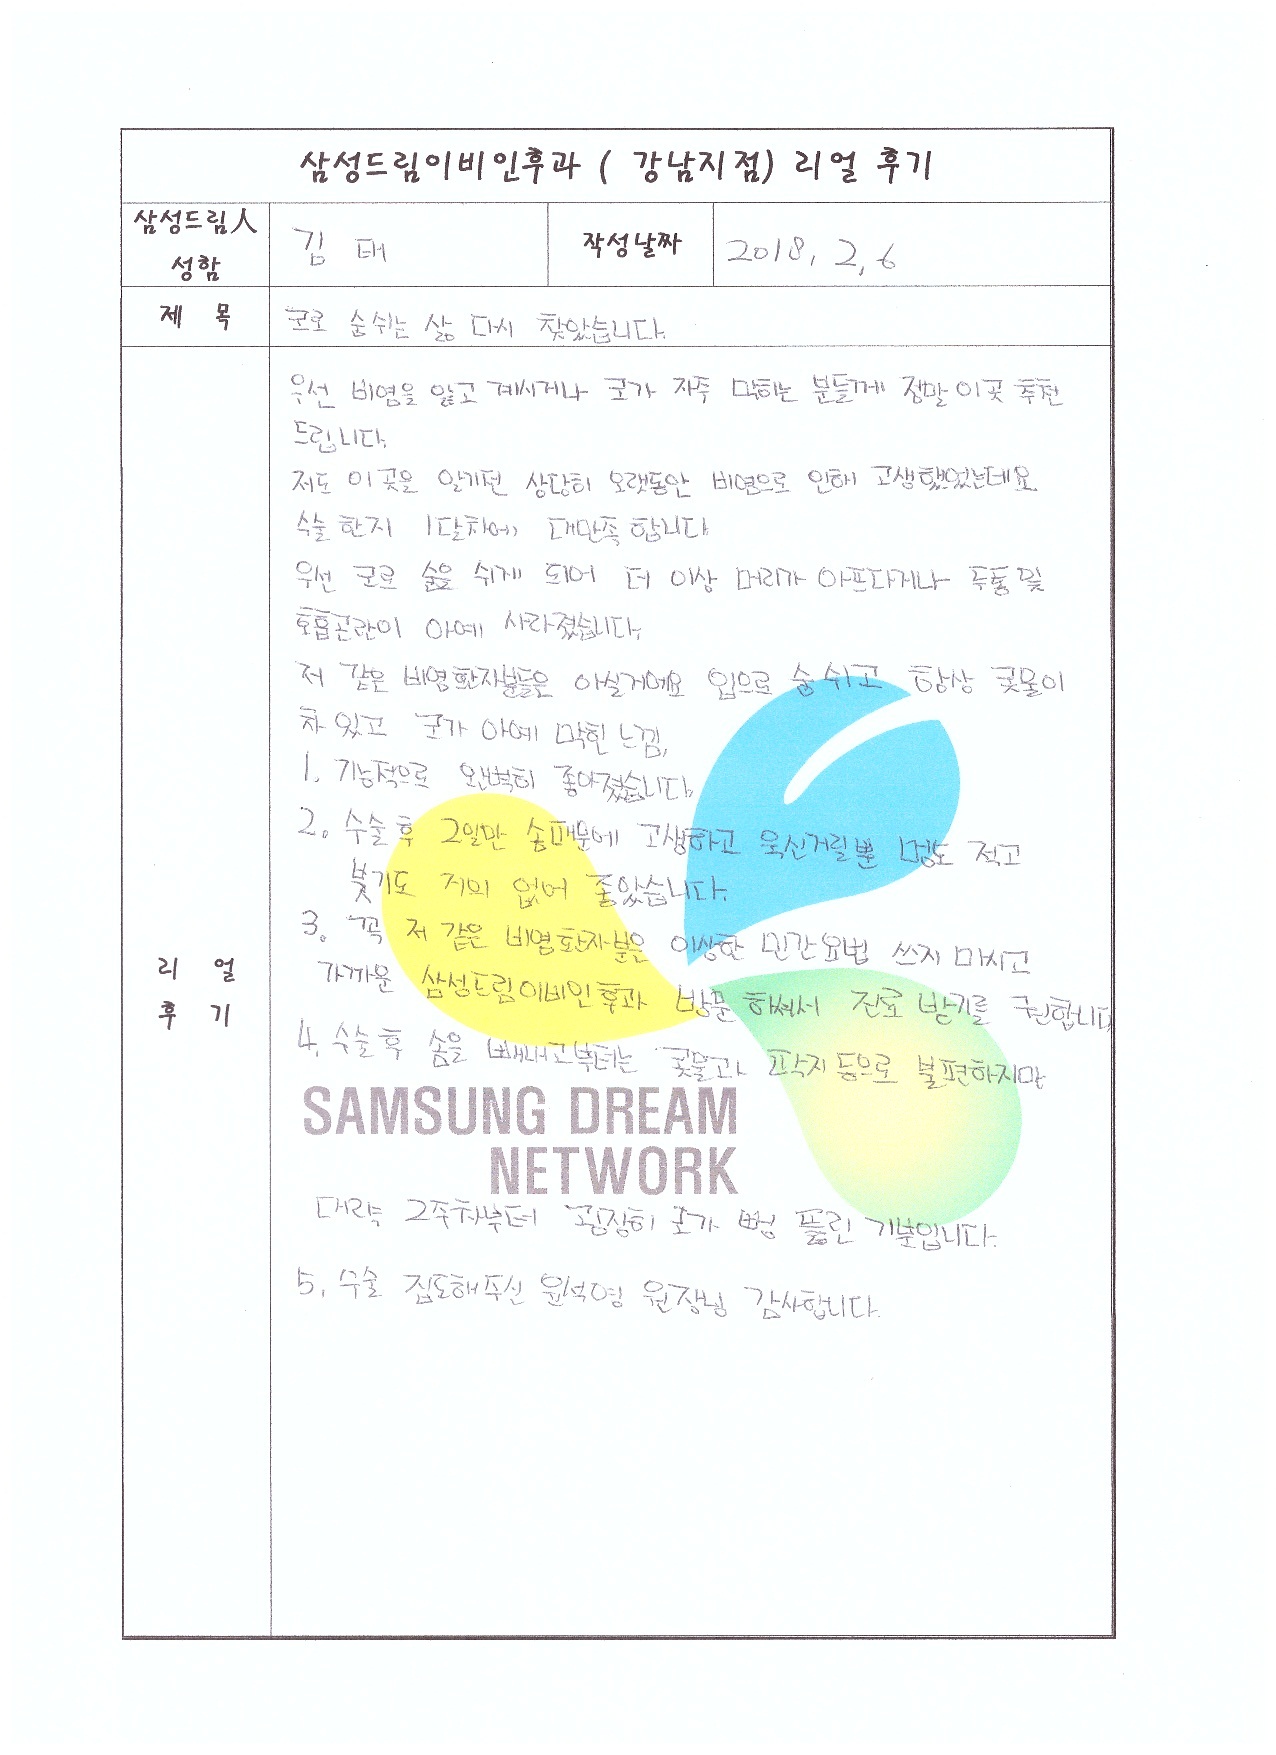 삼성드림이비인후과 ( 강남지점) 리얼 후기
삼성드림人
성함
김 태
작성날짜
2018. 2. 6
제 목
코로 숨쉬는 삶 다시 찾았습니다.
우선 비염을 앓고 계시거나 코가 자주 막히는 분들께 정말 이곳 추천
드립니다.
저도 이곳을 알기전 상당히 오랫동안 비염으로 인해 고생했었는데요
수술한지 1달차에 대만족합니다
우선 코로 숨을 쉬게 되어 더 이상 머리가 아프다거나 두통 및
호흡곤란이 아예 사라졌습니다.
저 같은 비염환자분들은 아실거에요 입으로 숨쉬고 항상 콧물이
차 있고 코가 아예 막힌 느낌,
1. 기능적으로 완벽히 좋아졌습니다.
2. 수술후 2일만 솜때문에 고생하고 욱신거릴뿐 멍도 적고
붓기도 거의 없어 좋았습니다.
3. 꼭 저 같은 비염환자분은 이상한 민간요법 쓰지 마시고
가까운 삼성드림이비인후과 방문하셔서 진료 받기를 권합니다
4. 수술후 솜을 빼내고부터는 콧물과 코딱지 등으로 불편하지만
SAMSUNG DREAM
NETWORK
대략 2주차부터 굉장히 코가 뻥 뚫린 기분입니다.
5. 수술 집도해주신 윤석영 원장님 감사합니다.
리 얼
후 기